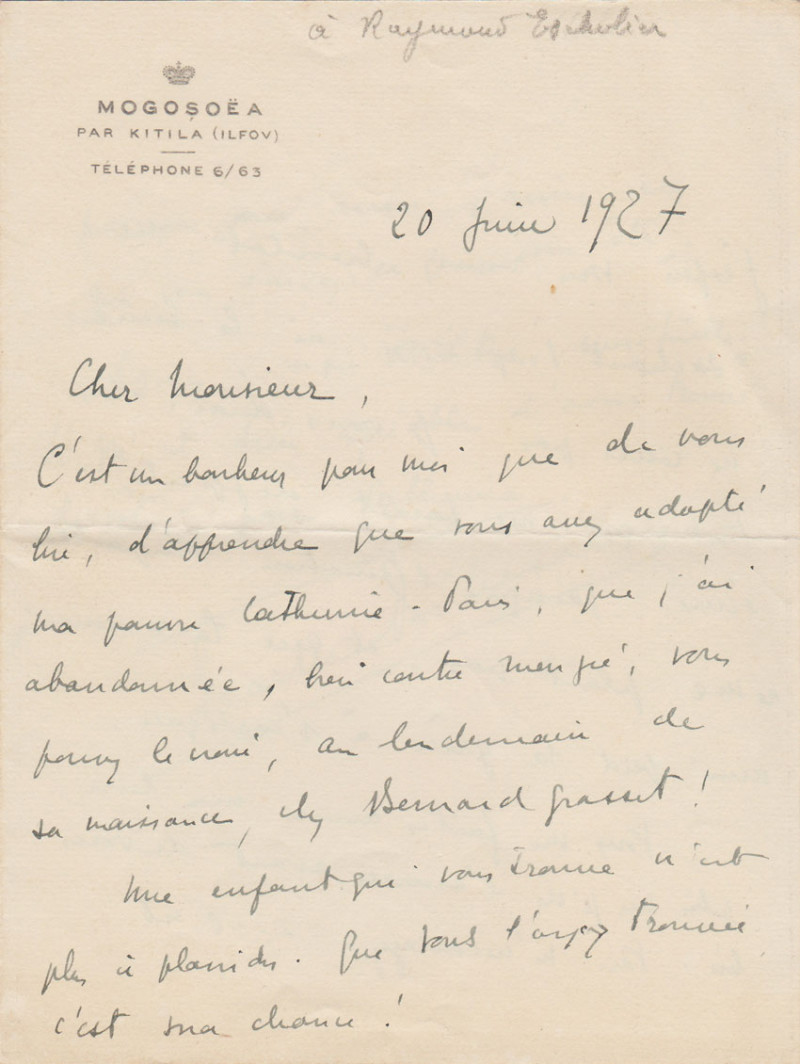 à Raymond Escholier
MOGOȘOËA
PAR KITILA (ILFOV)
TÉLÉPHONE 6/63
20 Juin 1927
Cher Monsieur,
C'est un bonheur pour moi que de vous
lire, d'apprendre que vous avez adopté
ma pauvre Catherine-Paris, que j'ai
abandonnée, bien contre mon gré, vous
pouvez le croire, au lendemain de
sa naissance, chez Bernard Grasset!
Une enfant qui vous trouve n'est
plus à plaindre. Que vous l'ayez trouvée
c'est sa chance!